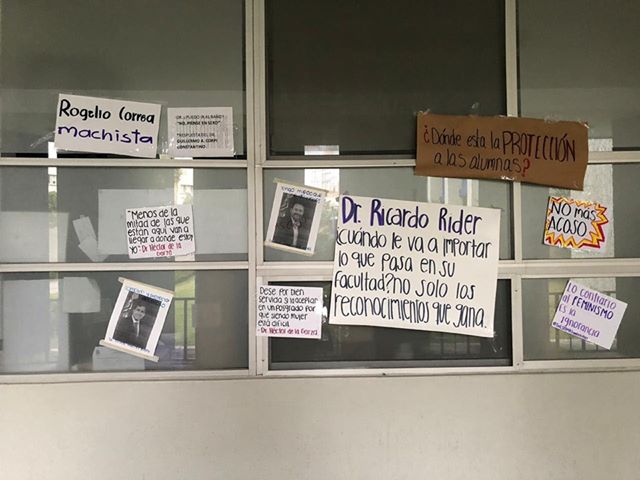 Rogelio Correa
machista
DR. ¿PUEDO IR AL BAÑO?
"NO, PIENSE EN SEXO"
*RESPUESTA DEL DR.
GUILLERMO A. CORPI
CONSTANTINO
¿Dónde esta la PROTECCIÓN
a las alumnas?
"Menos de la
mitad de los que
están aquí van a
llegar a donde estoy
yo" Dr. Héctor de la
Garza
Dr. Ricardo Rider
¿cuándo le va a importar
lo que pasa en su
facultad? no solo los
reconocimientos que gana.
NO MÁS
ACOSO
Dese por bien
servida si la aceptan
en un posgrado por
que siendo mujer
está difícil
- Dr. Héctor de la Garza
Lo contrario
al FEMINISMO
Es la
ignorancia